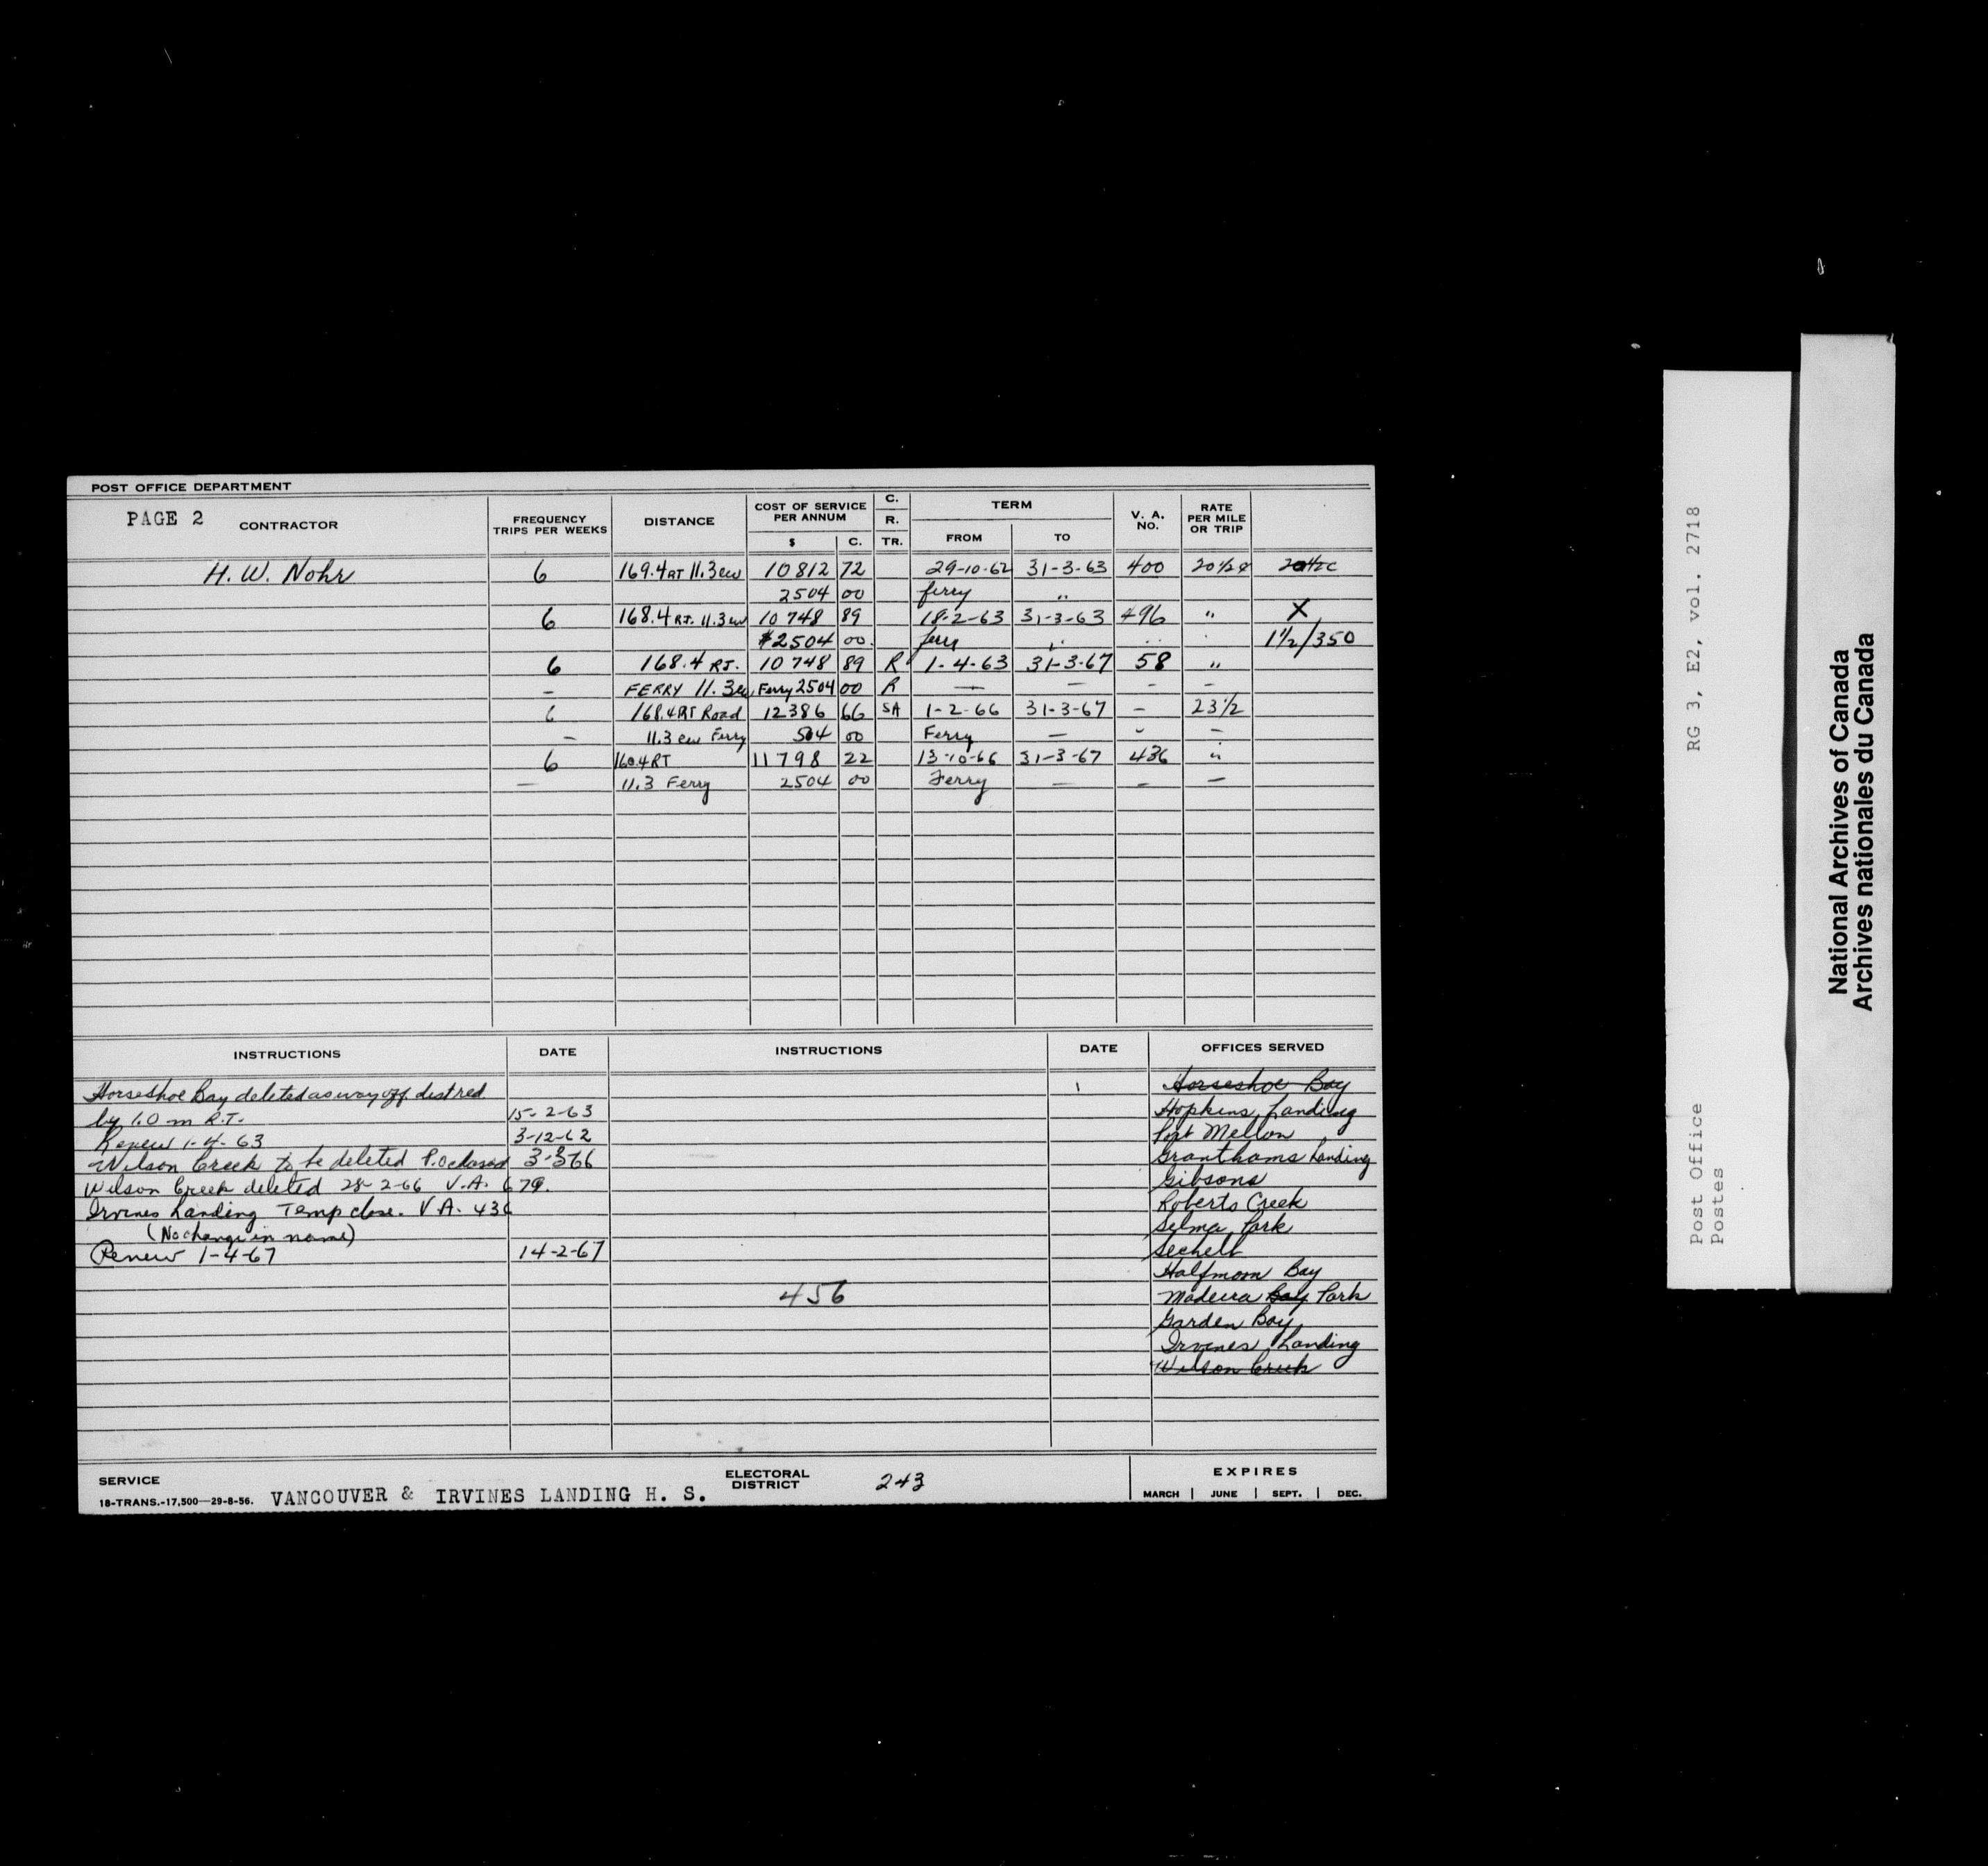 POST OFFICE DEPARTMENT
PAGE 2 CONTRACTOR FREQUENCY TRIPS PER WEEKS DISTANCE COST OF SERVICE PER ANNUM $ C. C. R. TR. TERM FROM TO V. A. NO. RATE PER MILE OR TRIP
H. W. Nohr 6 169.4 RT 11.3 ew 10812 72 29-10-62 31-3-63 400 20½¢
2504 00 ferry "
6 168.4 R.T. 11.3 ew 10748 89 18-2-63 31-3-63 496 " X
$2504 00. ferry " " 1½/350
6 168.4 RT. 10748 89 R 1-4-63 31-3-67 58 "
– FERRY 11.3 ew Ferry 2504 00 R — – – –
6 168.4 RT Road 12386 66 SA 1-2-66 31-3-67 – 23½
– 11.3 ew Ferry 504 00 Ferry — – –
6 160.4 RT 11798 22 13-10-66 31-3-67 436 "
— 11.3 Ferry 2504 00 Ferry — – –
INSTRUCTIONS DATE INSTRUCTIONS DATE OFFICES SERVED
Horseshoe Bay deleted as way off. dist red
by 1.0 m R.T. 15-2-63
Renew 1-4-63 3-12-62
Wilson Creek to be deleted P.O closed 3-3-66
Wilson Creek deleted 28-2-66 V.A. 679.
Irvines Landing Temp close. V A. 436
(No change in name)
Renew 1-4-67 14-2-67
456
Horseshoe Bay
Hopkins Landing
Port Mellon
Granthams Landing
Gibsons
Roberts Creek
Selma Park
Sechelt
Halfmoon Bay
Madeira Bay Park
Garden Bay
Irvines Landing
Wilson Creek
SERVICE
18-TRANS.-17,500—29-8-56. VANCOUVER & IRVINES LANDING H. S.
ELECTORAL DISTRICT 243
EXPIRES
MARCH | JUNE | SEPT. | DEC.
Post Office RG 3, E2, vol. 2718
Postes
National Archives of Canada
Archives nationales du Canada